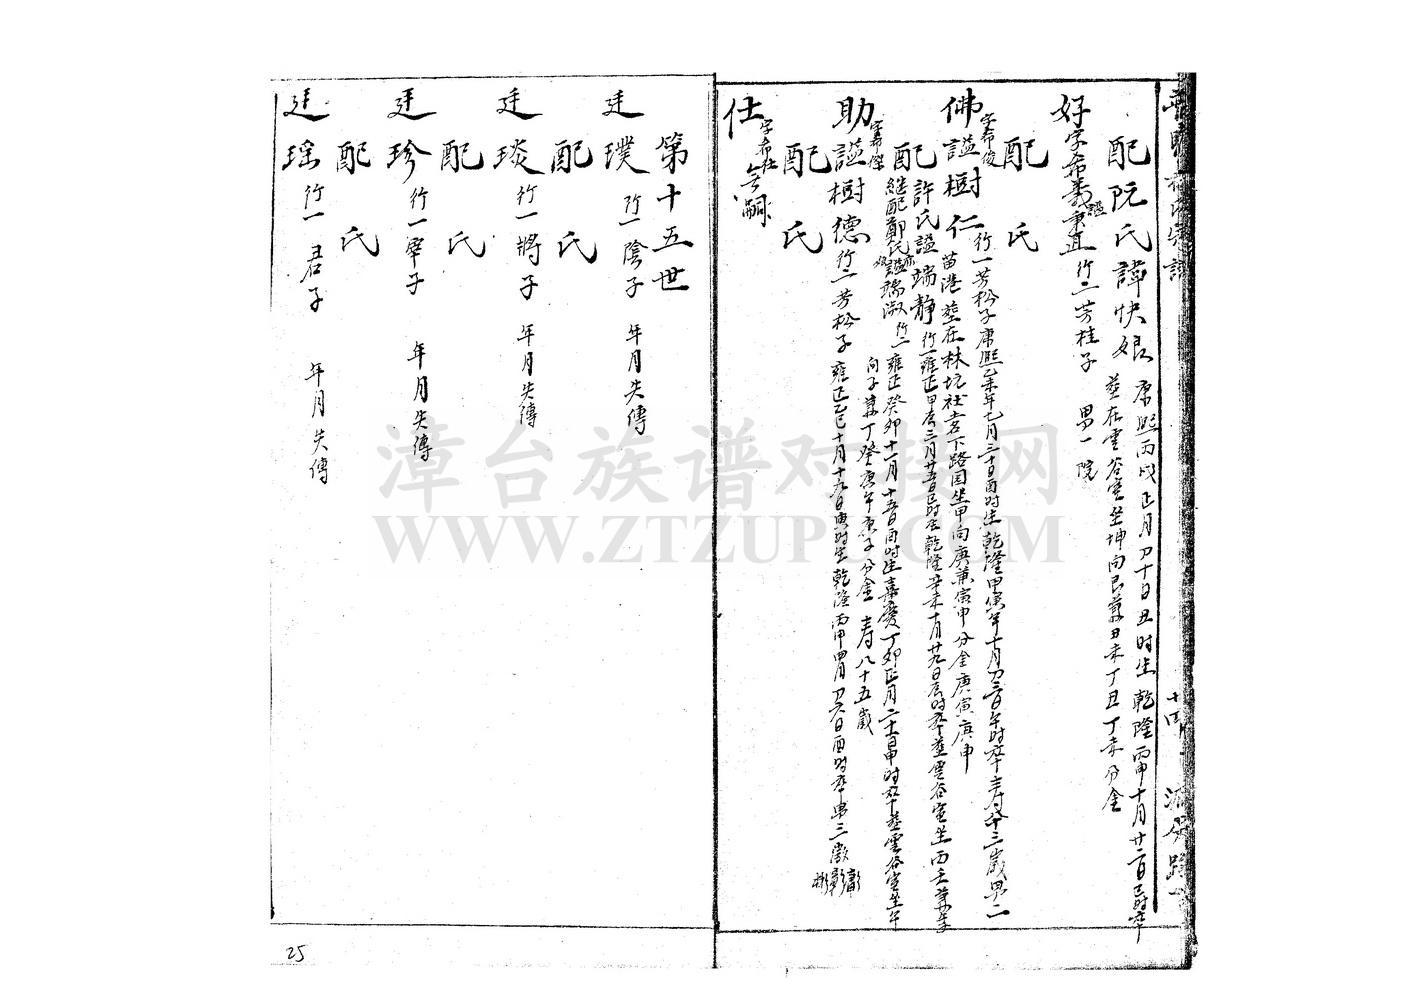 配阮氏諱快娘
康熙丙戌正月初十日丑時生乾隆丙申十月廿二日巳時卒
葬在雲谷窑坐坤向艮兼丑未丁丑丁未分金
好字希壽謚東直行二芳桂子 男一院
配 氏
佛字希俊謚樹仁
行一芳松子康熙乙未年七月三十日酉時生乾隆甲寅年十月初三日午時卒壽八十三歲男二
苗港葬在林坑社岩下路园坐甲向庚兼寅申分金庚寅庚申
配許氏謚端静
行一雍正甲辰三月廿五日巳時生乾隆辛未十月廿九日辰時卒葬雲谷窑坐丙
継配鄭氏謚端淑行二雍正癸卯十一月十五日酉時生嘉慶丁卯正月二十一日申時卒葬雲谷窑坐午
向子兼丁癸庚午庚子分金 壽八十五歲
助字希傑謚樹德行二芳松子
雍正乙巳十月十九日寅時生乾隆丙申四月初六日酉時卒男三
配 氏
仕字希仕 無嗣
第十五世
廷璞 行一陰子 年月失傳
配 氏
廷琰 行一將子 年月失傳
配 氏
廷珍 行一宰子 年月失傳
配 氏
廷瑶 行一君子 年月失傳
十四
25
漳台族谱对接网
WWW.ZTZUPU.COM